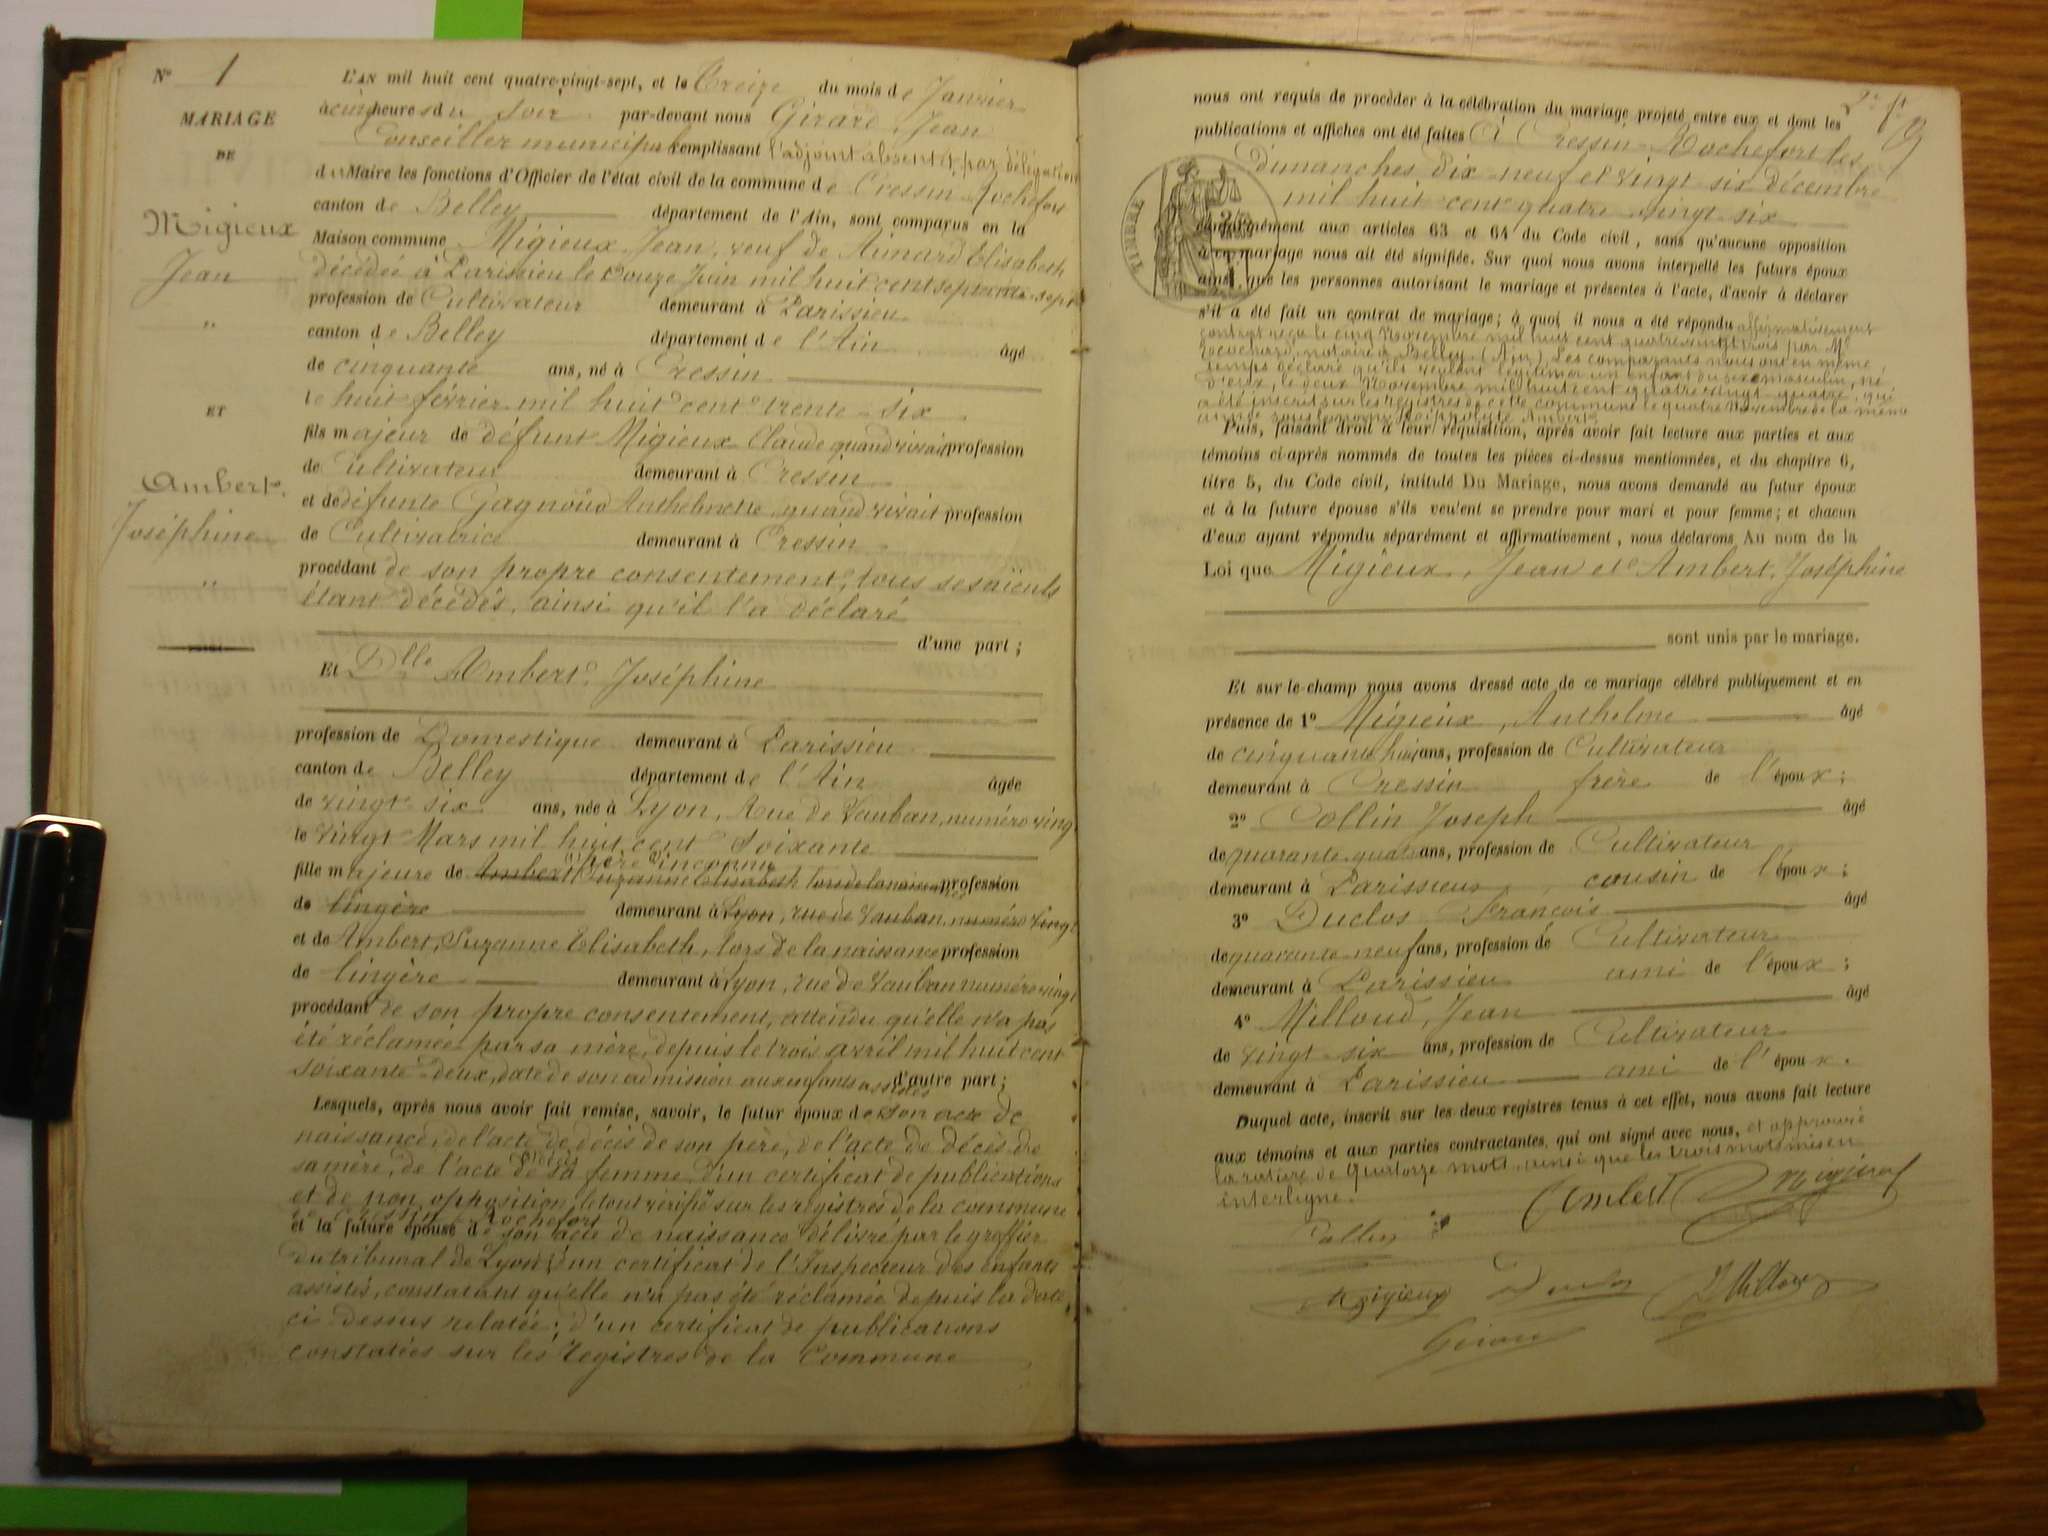 N° 1
MARIAGE
DE
Migieux
Jean
"
ET
Ambert,
Joséphine
"
L'AN mil huit cent quatre-vingt-sept, et le Treize du mois de Janvier
à cinq heures du soir par-devant nous Girard, Jean
Conseiller municipal remplissant l'adjoint absent et par délégation
du Maire les fonctions d'Officier de l'état civil de la commune de Cressin-Rochefort
canton de Belley département de l'Ain, sont comparus en la
Maison commune Migieux Jean, veuf de Aimard Elisabeth
décédée à Parissieu le Douze Juin mil huit cent septante-sept
profession de Cultivateur demeurant à Parissieu
canton de Belley département de l'Ain âgé
de cinquante ans, né à Cressin
le huit février mil huit cent trente-six
fils majeur de défunt Migieux Claude quand vivait profession
de Cultivateur demeurant à Cressin
et de défunte Gagnoud Anthelmette, quand vivait profession
de Cultivatrice demeurant à Cressin
procédant de son propre consentement, tous ses aïeuls
étant décédés, ainsi qu'il l'a déclaré
d'une part ;
Et Dlle Ambert, Joséphine
profession de Domestique demeurant à Parissieu
canton de Belley département de l'Ain âgée
de vingt-six ans, née à Lyon, Rue de Vauban, numéro vingt
le vingt Mars mil huit cent Soixante
père inconnu
fille majeure de Ambert Suzanne Elisabeth lors de la naissance profession
de lingère demeurant à Lyon, rue de Vauban, numéro vingt
et de Ambert, Suzanne Elisabeth, lors de la naissance profession
de lingère demeurant à Lyon, rue de Vauban numéro vingt
procédant de son propre consentement, attendu qu'elle n'a pas
été réclamée par sa mère, depuis le trois avril mil huit cent
soixante-deux, date de son admission aux enfants assistés d'autre part ;
Lesquels, après nous avoir fait remise, savoir, le futur époux de son acte de
naissance, de l'acte de décès de son père, de l'acte de décès de
sa mère, de l'acte de décès de sa femme, d'un certificat de publications
et de non opposition, le tout vérifié sur les registres de la commune
de Cressin-Rochefort
et la future épouse de son acte de naissance délivré par le greffier
du tribunal de Lyon, d'un certificat de l'Inspecteur des enfants
assistés, constatant qu'elle n'a pas été réclamée depuis la date
ci-dessus relatée ; d'un certificat de publications
constatées sur les registres de la Commune
nous ont requis de procéder à la célébration du mariage projeté entre eux et dont les
publications et affiches ont été faites à Cressin-Rochefort les
dimanches dix-neuf et vingt-six décembre
mil huit cent quatre-vingt-six
TIMBRE
conformément aux articles 63 et 64 du Code civil, sans qu'aucune opposition
à ce mariage nous ait été signifiée. Sur quoi nous avons interpellé les futurs époux
ainsi que les personnes autorisant le mariage et présentes à l'acte, d'avoir à déclarer
s'il a été fait un contrat de mariage ; à quoi il nous a été répondu affirmativement
contrat reçu le cinq Novembre mil huit cent quatre-vingt-trois par Me
notaire à Belley (Ain). Les comparants nous ont en même
temps déclaré qu'ils veulent légitimer un enfant du sexe masculin, né
d'eux, le deux Novembre mil huit cent quatre-vingt-quatre, qui
a été inscrit sur les registres de cette commune le quatre Novembre de la même
année sous le nom de Hippolyte Ambert
Puis, faisant droit à leur réquisition, après avoir fait lecture aux parties et aux
témoins ci-après nommés de toutes les pièces ci-dessus mentionnées, et du chapitre 6,
titre 5, du Code civil, intitulé Du Mariage, nous avons demandé au futur époux
et à la future épouse s'ils veulent se prendre pour mari et pour femme ; et chacun
d'eux ayant répondu séparément et affirmativement, nous déclarons Au nom de la
Loi que Migieux, Jean et Ambert, Joséphine
sont unis par le mariage.
Et sur-le-champ nous avons dressé acte de ce mariage célébré publiquement et en
présence de 1° Migieux, Anthelme âgé
de cinquante huit ans, profession de Cultivateur
demeurant à Cressin frère de l'époux ;
2° Collin Joseph âgé
de quarante quatre ans, profession de Cultivateur
demeurant à Parissieu, cousin de l'époux ;
3° Duclos François âgé
de quarante neuf ans, profession de Cultivateur
demeurant à Parissieu ami de l'époux ;
4° Milloud, Jean âgé
de vingt-six ans, profession de Cultivateur
demeurant à Parissieu ami de l'époux.
Duquel acte, inscrit sur les deux registres tenus à cet effet, nous avons fait lecture
aux témoins et aux parties contractantes, qui ont signé avec nous, et approuvé
la rature de quatorze mots, ainsi que les trois mots mis en
interligne.
Ambert Migieux
Collin
Migieux Duclos J Milloud
Girard